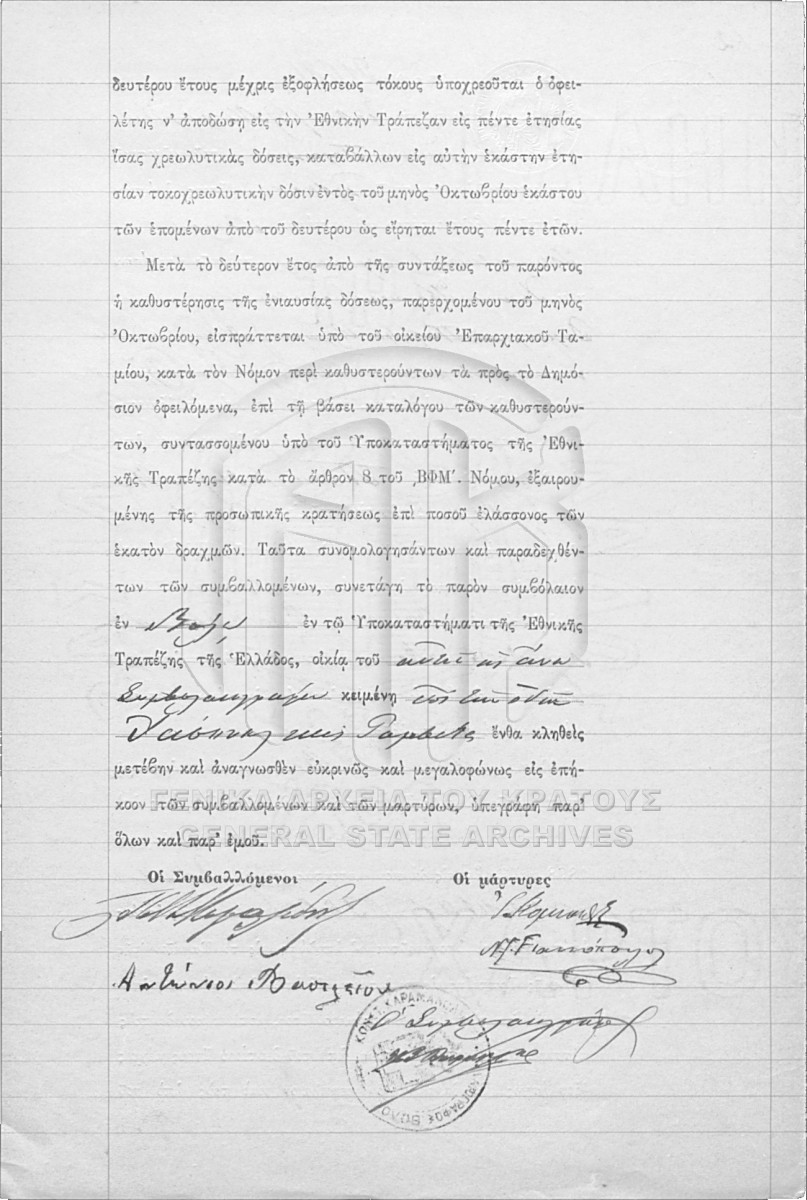 δευτέρου ἔτους μέχρις ἐξοφλήσεως τόκους ὑποχρεοῦται ὁ ὀφει-
λέτης ν' ἀποδώσῃ εἰς τὴν Ἐθνικὴν Τράπεζαν εἰς πέντε ἐτησίας
ἴσας χρεωλυτικὰς δόσεις, καταβάλλων εἰς αὐτὴν ἑκάστην ἐτη-
σίαν τοκοχρεωλυτικὴν δόσιν ἐντὸς τοῦ μηνὸς Ὀκτωβρίου ἑκάστου
τῶν ἑπομένων ἀπὸ τοῦ δευτέρου ὡς εἴρηται ἔτους πέντε ἐτῶν.
Μετὰ τὸ δεύτερον ἔτος ἀπὸ τῆς συντάξεως τοῦ παρόντος
ἡ καθυστέρησις τῆς ἐνιαυσίας δόσεως, παρερχομένου τοῦ μηνὸς
Ὀκτωβρίου, εἰσπράττεται ὑπὸ τοῦ οἰκείου Ἐπαρχιακοῦ Τα-
μίου, κατὰ τὸν Νόμον περὶ καθυστερούντων τὰ πρὸς τὸ Δημό-
σιον ὀφειλόμενα, ἐπὶ τῇ βάσει καταλόγου τῶν καθυστερούν-
των, συντασσομένου ὑπὸ τοῦ Ὑποκαταστήματος τῆς Ἐθνι-
κῆς Τραπέζης κατὰ τὸ ἄρθρον 8 τοῦ ͵ΒΦΜ΄. Νόμου, ἐξαιρου-
μένης τῆς προσωπικῆς κρατήσεως ἐπὶ ποσοῦ ἐλάσσονος τῶν
ἑκατὸν δραχμῶν. Ταῦτα συνομολογησάντων καὶ παραδεχθέν-
των τῶν συμβαλλομένων, συνετάγη τὸ παρὸν συμβόλαιον
ἐν Βόλῳ ἐν τῷ Ὑποκαταστήματι τῆς Ἐθνικῆς
Τραπέζης τῆς Ἑλλάδος, οἰκίᾳ τοῦ
Συμβολαιογράφου κειμένῃ ἐπὶ τῶν ὁδῶν
Ἰάσονος καὶ ἔνθα κληθεὶς
μετέβην καὶ ἀναγνωσθὲν εὐκρινῶς καὶ μεγαλοφώνως εἰς ἐπή-
κοον τῶν συμβαλλομένων καὶ τῶν μαρτύρων, ὑπεγράφη παρ'
ὅλων καὶ παρ' ἐμοῦ.
ΓΕΝΙΚΑ ΑΡΧΕΙΑ ΤΟΥ ΚΡΑΤΟΥΣ
GENERAL STATE ARCHIVES
Οἱ Συμβαλλόμενοι Οἱ μάρτυρες
Ἀντώνιος Βασιλείου
Ὁ Συμβολαιογράφος